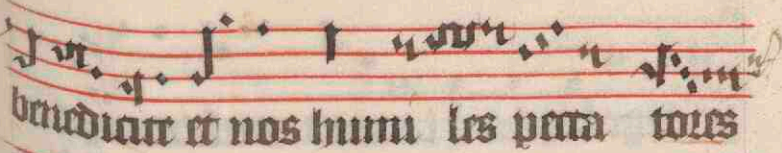 benedicite et nos humi les pecca tores